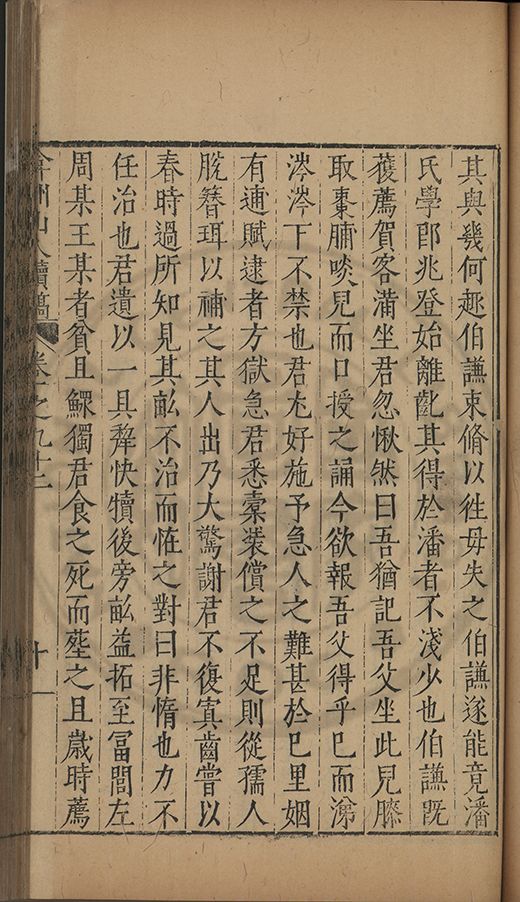 其與幾何趣伯謙束脩以徃毋失之伯謙遂能竟潘
氏學即兆登始離齔其得於潘者不淺少也伯謙旣
獲薦賀客滿坐君忽愀然曰吾猶記吾父坐此兒膝
取棗脯啖兒而口授之誦今欲報吾父得乎已而涕
涔涔下不禁也君尤好施予急人之難甚於已里姻
有逋賦逮者方獄急君悉橐裝償之不足則從孺人
脫簪珥以補之其人出乃大驚謝君不復寘齒嘗以
春時過所知見其畝不治而恠之對曰非惰也力不
任治也君遺以一具犂快犢後旁畝益拓至冨閭左
周某王某者貧且鰥獨君食之死而塟之且歲時薦
弇州山人續稿 卷之九十二 十一